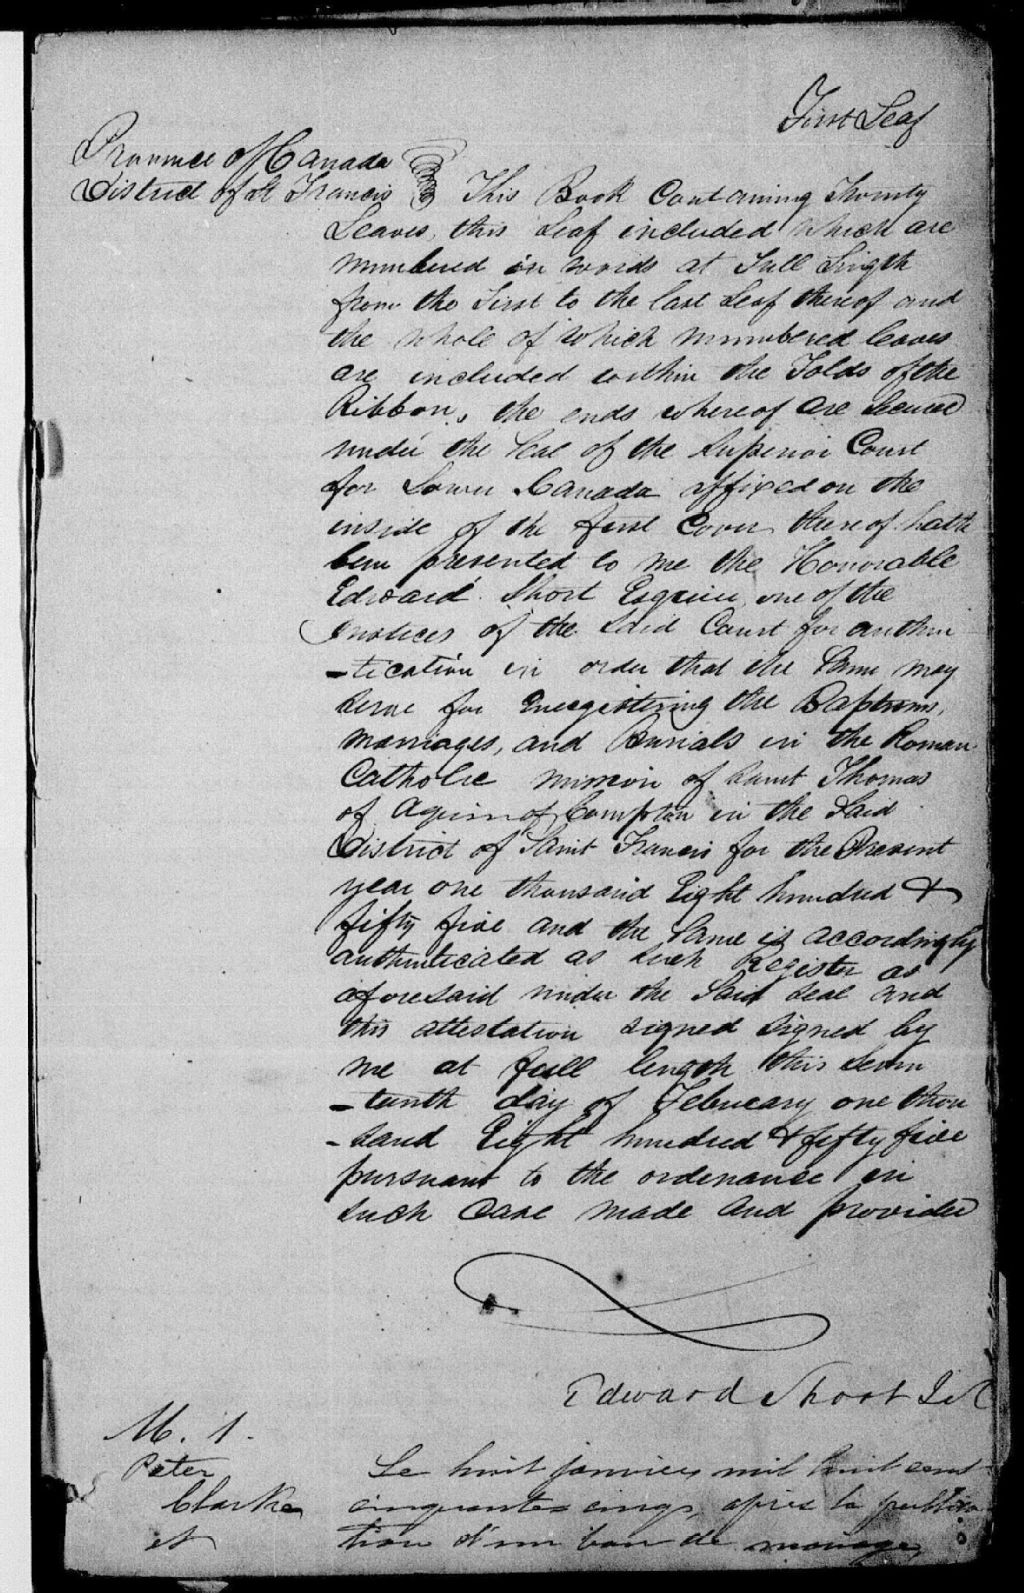 First Leaf
Province of Canada
District of St Francis This Book Containing Twenty
Leaves, this Leaf included which are
numbered in words at Full Length
from the First to the last Leaf thereof and
the whole of which numbered leaves
are included within the Folds of the
Ribbon, the ends whereof are Secured
under the Seal of the Superior Court
for Lower Canada affixed on the
inside of the first Cover thereof hath
been presented to me the Honorable
Edward Short Esquire, one of the
Justices of the Said Court for authen
-tication in order that the Same may
serve for Enregistering the Baptisms,
marriages, and Burials in the Roman
Catholic mission of Saint Thomas
of Aquin of Compton in the Said
District of Saint Francis for the Present
year one thousand Eight hundred &
fifty five and the Same is accordingly
authenticated as such Register as
aforesaid under the Said Seal and
this attestation signed signed by
me at full length this Seven
-teenth day of February one thou
-sand Eight hundred & fifty five
pursuant to the ordenance in
such Case made and provided
Edward Short
M. 1.
Peter
Clarke
et
Le huit janvier mil huit cent
cinquante-cinq, après la publica
tion d'un ban de mariage,